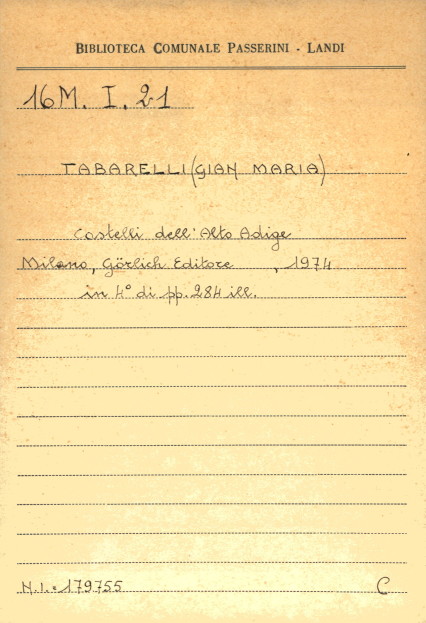 BIBLIOTECA COMUNALE PASSERINI - LANDI
16M. I. 21
TABARELLI (GIAN MARIA)
Castelli dell'Alto Adige
Milano, Görlich Editore , 1974
in 4° di pp. 284 ill.
N.I. = 179755 C